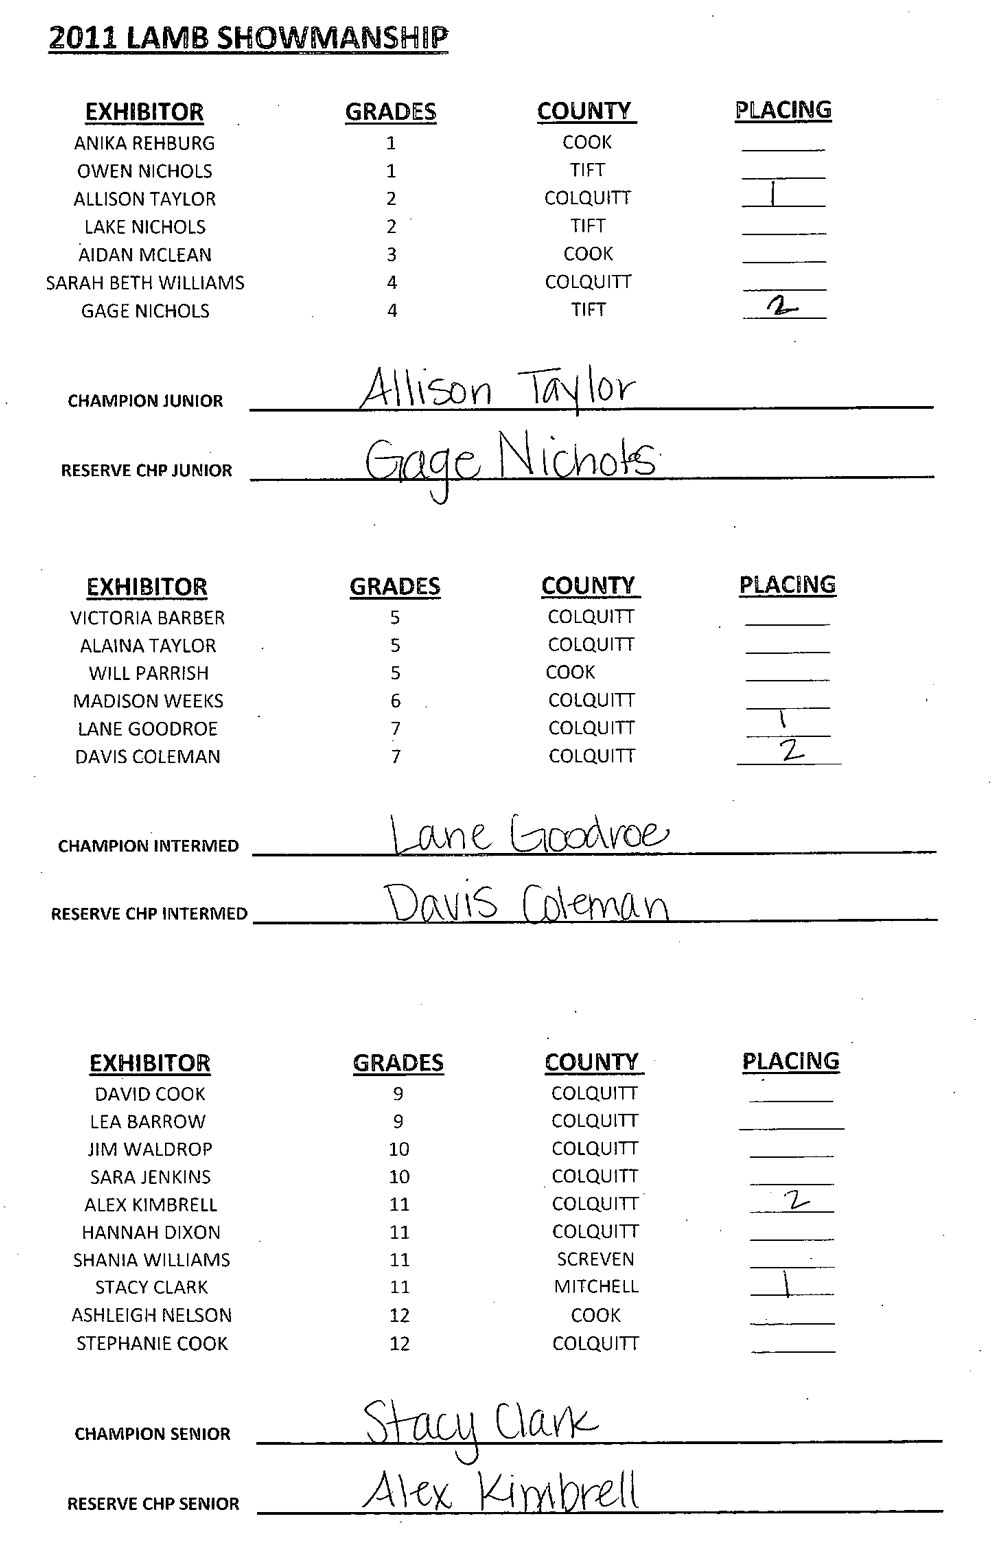 2011 LAMB SHOWMANSHIP
EXHIBITOR GRADES COUNTY PLACING
ANIKA REHBURG 1 COOK
OWEN NICHOLS 1 TIFT
ALLISON TAYLOR 2 COLQUITT 1
LAKE NICHOLS 2 TIFT
AIDAN MCLEAN 3 COOK
SARAH BETH WILLIAMS 4 COLQUITT
GAGE NICHOLS 4 TIFT 2
CHAMPION JUNIOR Allison Taylor
RESERVE CHP JUNIOR Gage Nichols
EXHIBITOR GRADES COUNTY PLACING
VICTORIA BARBER 5 COLQUITT
ALAINA TAYLOR 5 COLQUITT
WILL PARRISH 5 COOK
MADISON WEEKS 6 COLQUITT
LANE GOODROE 7 COLQUITT 1
DAVIS COLEMAN 7 COLQUITT 2
CHAMPION INTERMED Lane Goodroe
RESERVE CHP INTERMED Davis Coleman
EXHIBITOR GRADES COUNTY PLACING
DAVID COOK 9 COLQUITT
LEA BARROW 9 COLQUITT
JIM WALDROP 10 COLQUITT
SARA JENKINS 10 COLQUITT
ALEX KIMBRELL 11 COLQUITT 2
HANNAH DIXON 11 COLQUITT
SHANIA WILLIAMS 11 SCREVEN
STACY CLARK 11 MITCHELL 1
ASHLEIGH NELSON 12 COOK
STEPHANIE COOK 12 COLQUITT
CHAMPION SENIOR Stacy Clark
RESERVE CHP SENIOR Alex Kimbrell